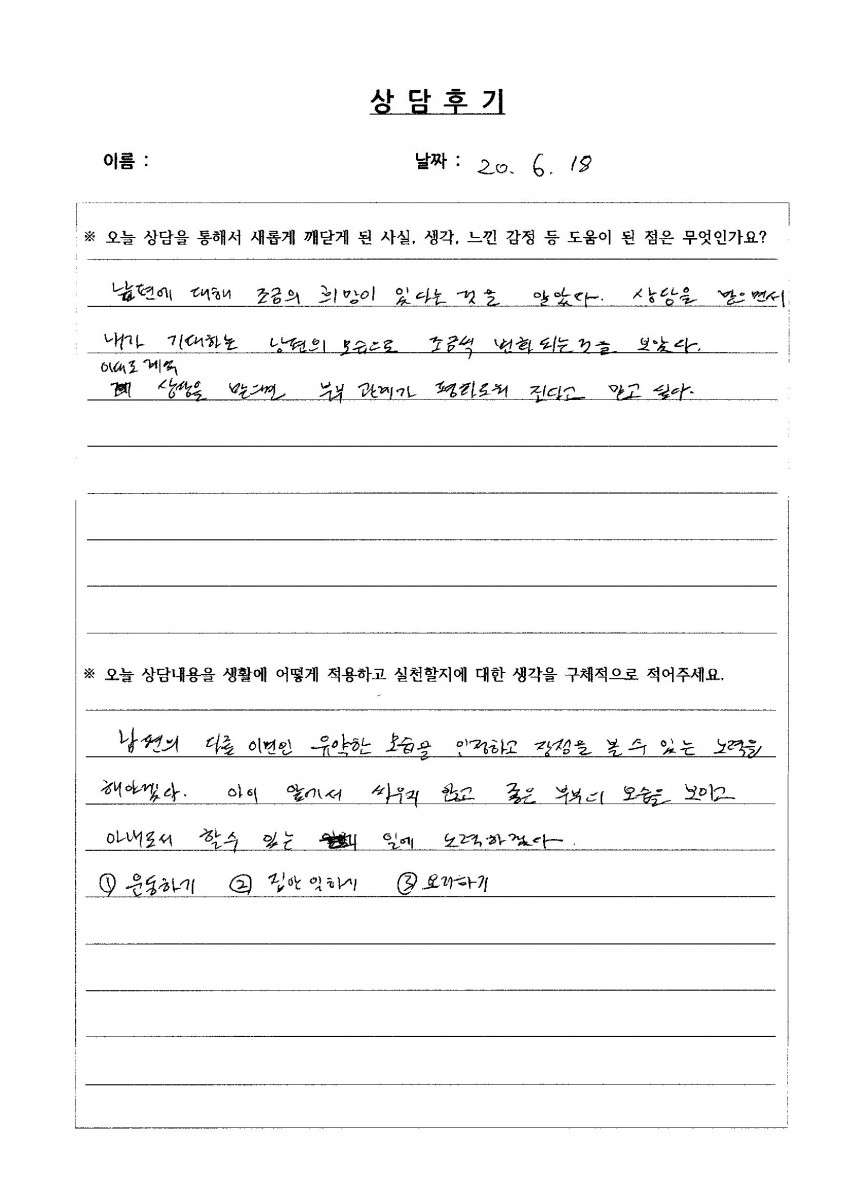 상 담 후 기
이름 :
날짜 : 20. 6. 18
※ 오늘 상담을 통해서 새롭게 깨닫게 된 사실, 생각, 느낀 감정 등 도움이 된 점은 무엇인가요?
남편에 대해 조금의 희망이 있다는 것을 알았다. 상담을 받으면서
내가 기대하는 남편의 모습으로 조금씩 변화되는것을 보았다.
이대로 계속
상담을 받으면 부부 관계가 평화로워 진다고 믿고 싶다.
※ 오늘 상담내용을 생활에 어떻게 적용하고 실천할지에 대한 생각을 구체적으로 적어주세요.
남편의 다를 이면인 유약한 모습을 인정하고 장점을 볼 수 있는 노력을
해야겠다. 아이 앞에서 싸우지 않고 좋은 부부의 모습을 보이고
아내로서 할수 있는 일에 노력하겠다.
① 운동하기 ② 집안 일하기 ③ 요리하기